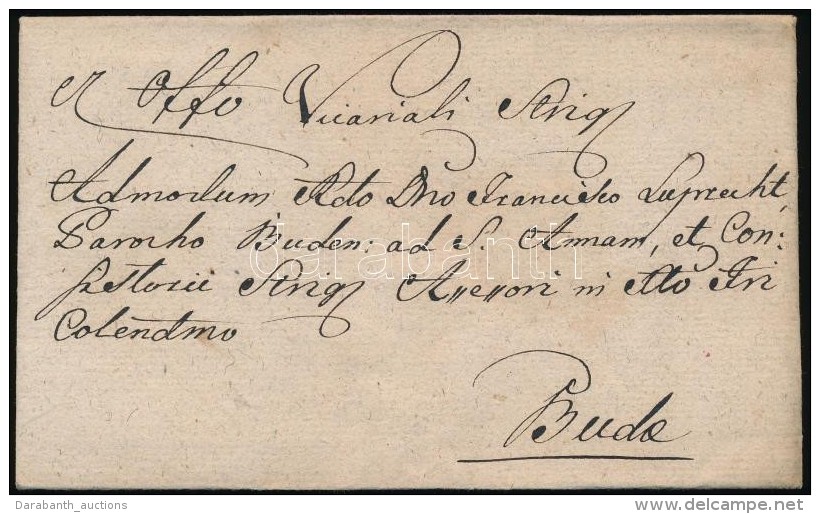 Ex Offo Vicariali Strig
Admodum Rdo Dno Francisco Luprecht,
Parocho Buden: ad S. Annam, et Con:
sistorii Strig Assessori in Xto Fri
Colendmo
Budæ
darabanth
Darabanth_auctions
delcampe.net